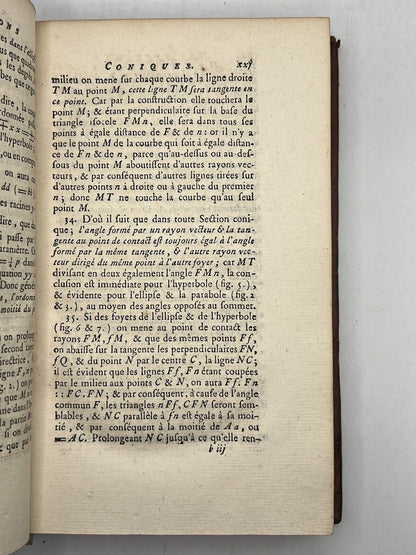 CONIQUES. xxj
milieu on mene sur chaque courbe la ligne droite
TM au point M, cette ligne TM sera tangente en
ce point. Car par la construction elle touchera le
point M; & étant perpendiculaire sur la base du
triangle isocele FMn, elle sera dans tous ses
points à égale distance de F & de n: or il n'y a
que le point M de la courbe qui soit à égale distance
de F n & de n, parce qu'au-dessus ou au-des-
sous du point M aboutissent d'autres rayons vec-
teurs, & par conséquent d'autres lignes tirées sur
d'autres points n à droite ou à gauche du premier
n; donc MT ne touche la courbe qu'au seul
point M.
34. D'où il suit que dans toute Section coni-
que; l'angle formé par un rayon vecteur & la tan-
gente au point de contact est toujours égal à l'angle
formé par la même tangente, & l'autre rayon vec-
teur dirigé du même point à l'autre foyer; car MT
divisant en deux également l'angle FMn, la con-
clusion est immédiate pour l'hyperbole (fig. 5.),
& évidente pour l'ellipse & la parabole (fig. 2
& 3.), au moyen des angles opposés au sommet.
35. Si des foyers de l'ellipse & de l'hyperbole
(fig. 6 & 7.) on mene au point de contact les
rayons FM, fM, & que des mêmes points Ff,
on abaisse sur la tangente les perpendiculaires FN,
fQ, & du point N par le centre C, la ligne NC;
il est évident que les lignes Ff, Fn étant coupées
par le milieu aux points C & N, on aura Ff. Fn
:: FC. FN; & par conséquent, à cause de l'angle
commun F, les triangles nFf, CFN seront sem-
blables, & NC parallèle à fn est égale à sa moi-
tié, & par conséquent à la moitié de Aa, ou
= AC. Prolongeant NC jusqu'à ce qu'elle ren-
b iij